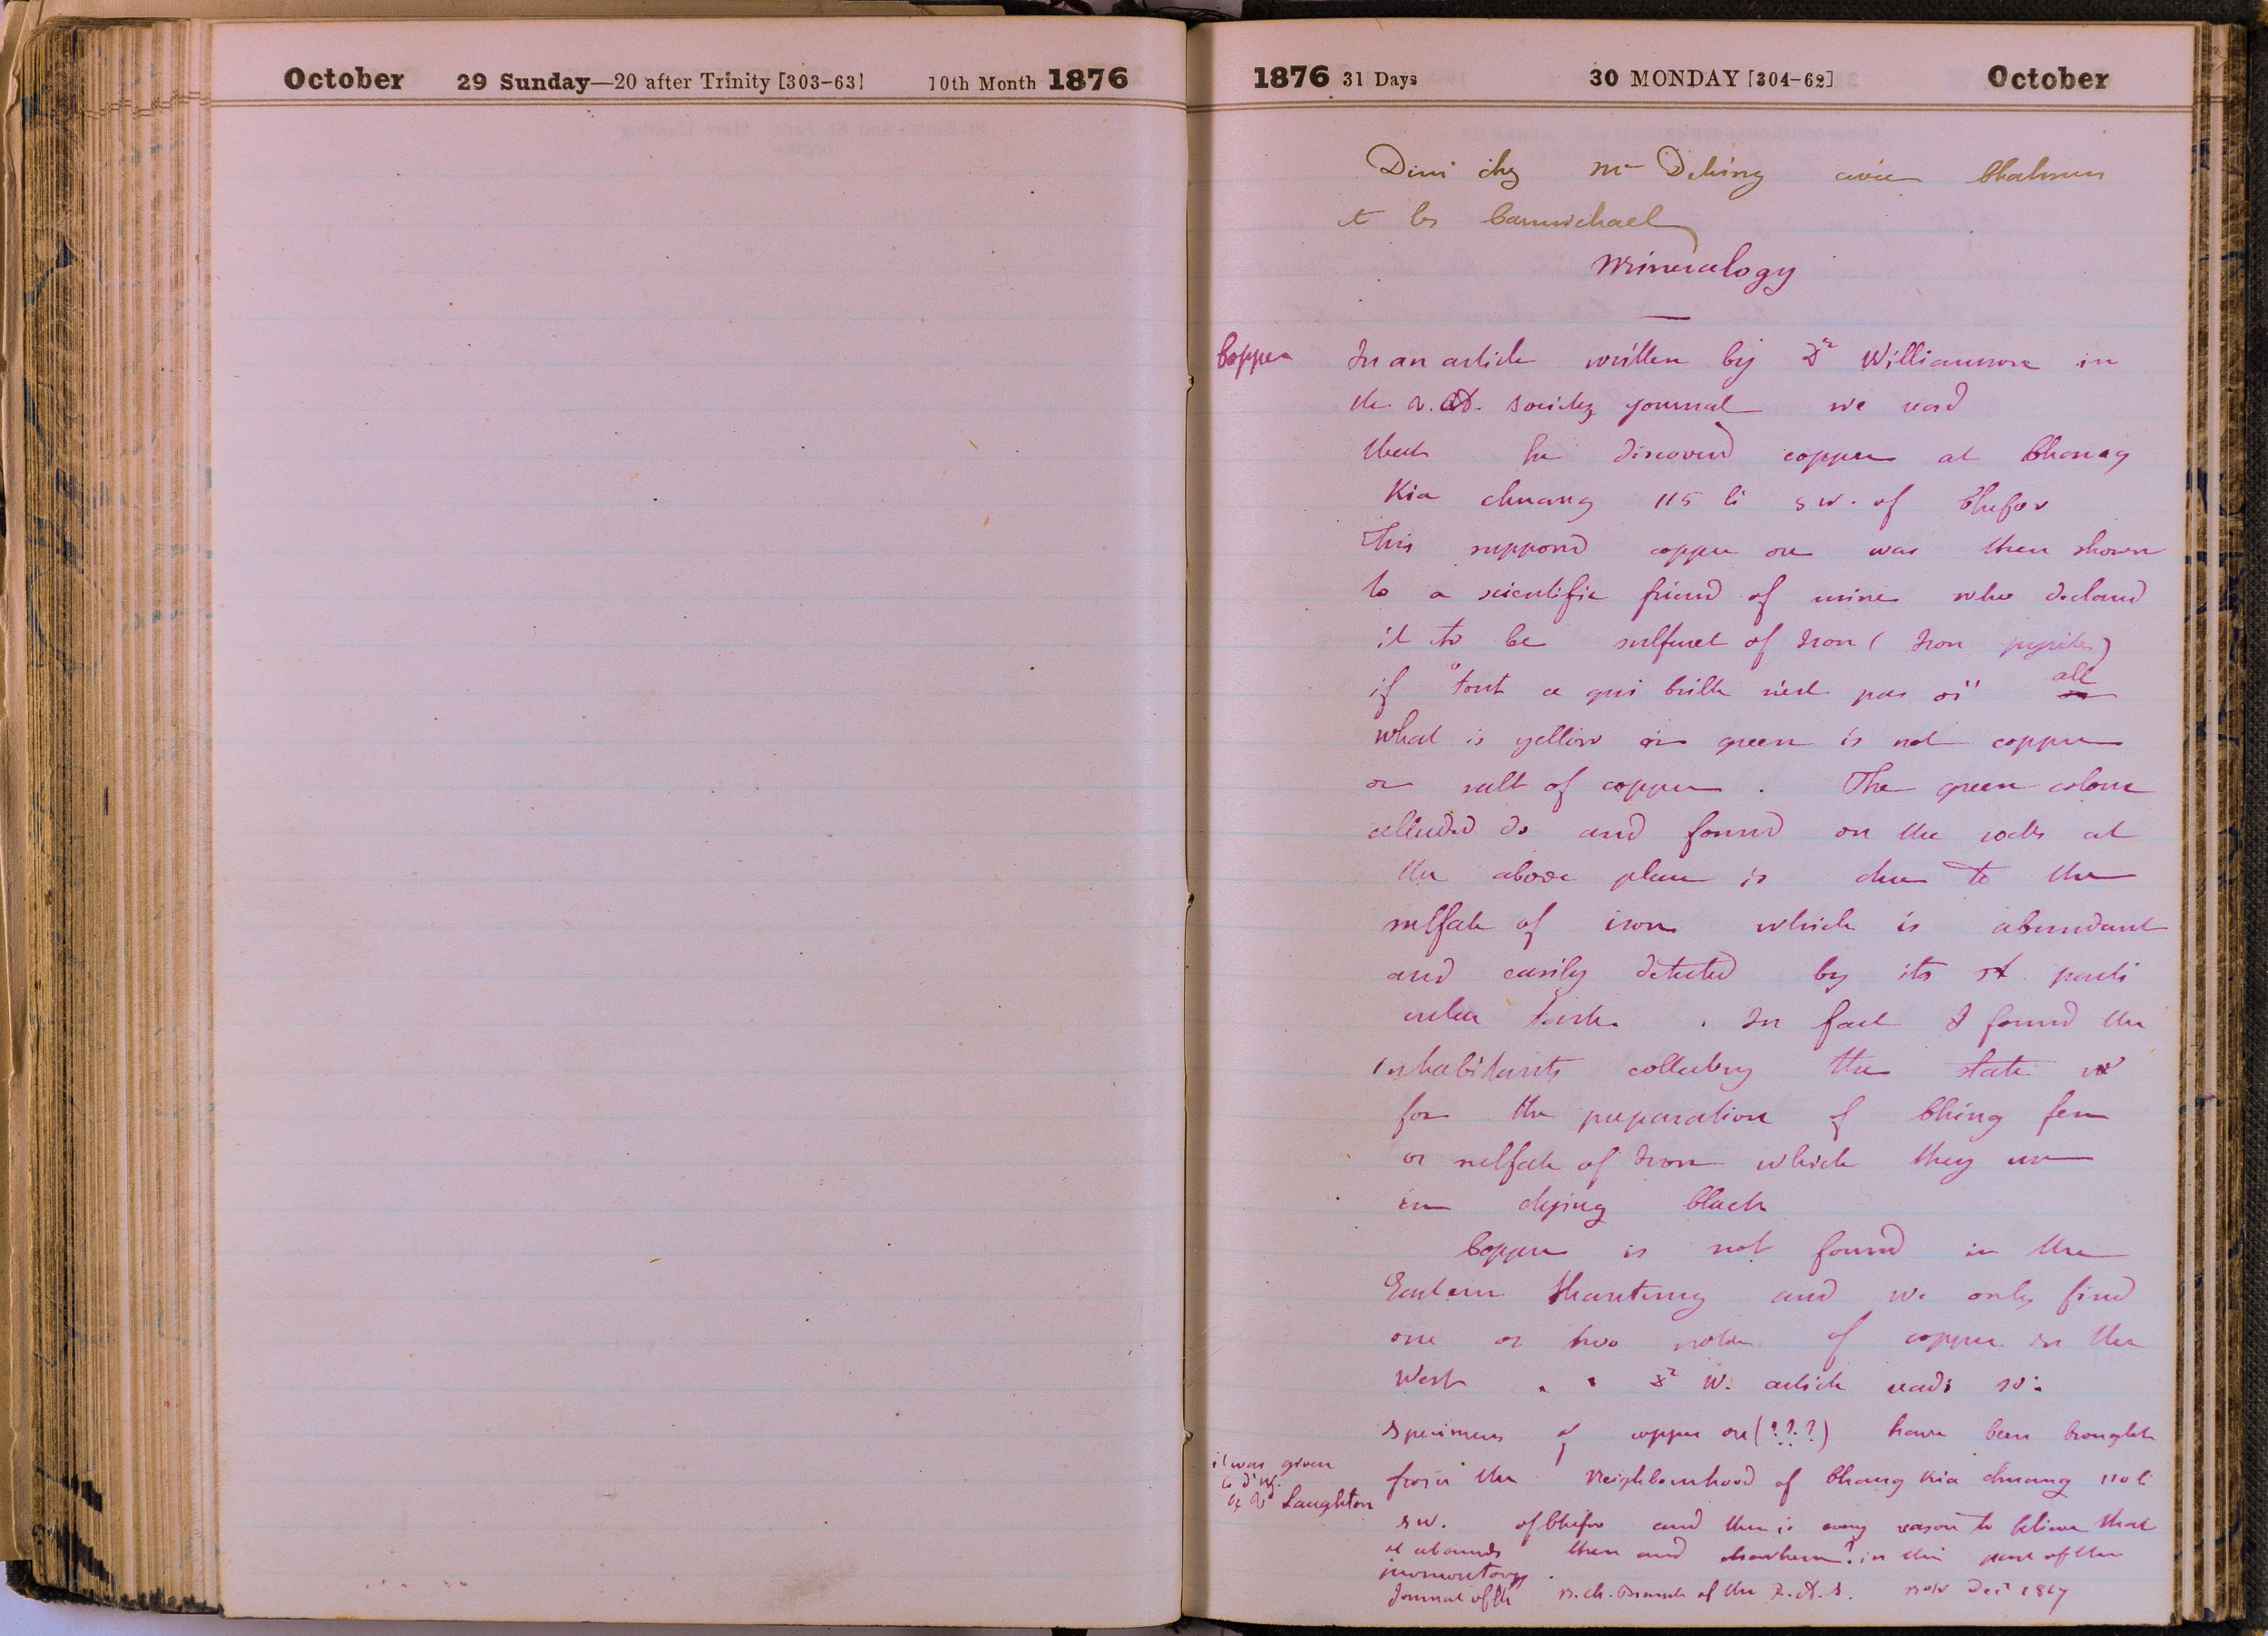 October 29 Sunday—20 after Trinity [303-63] 10th Month 1876
1876 31 Days 30 MONDAY [304-62] October
Dini chez Mr Detring avec
et les Carmichael
Mineralogy
Copper
In an article written by Dr Williamson in
the R.A. Society journal we read
that he discovered copper at Chang
Kia chuang 115 li S.W. of Chefoo
This supposed copper ore was then shown
to a scientific friend of mine who declared
it to be sulfuret of Iron (Iron pyrites)
if "tout ce qui brille n'est pas or" all
what is yellow or green is not copper
or salt of copper. The green colour
alluded to and found on the rocks at
the above place is due to the
sulfate of iron which is abundant
and easily detected by its st parti
cular taste. In fact I found the
inhabitants collecting the slate
for the preparation of Ching fen
or sulfate of Iron which they use
in dying black
Copper is not found in the
Eastern Shantung and we only find
one or two notes of copper in the
West. Dr W. article reads so:
Specimens of copper ore (???) have been brought
from the Neighbourhood of Chang Kia chuang 110 li
S.W. of Chefoo and there is every reason to believe that
it abounds there and elsewhere? in this part of the
promontory.
Journal of the N.Ch. Branch of the R.A.S. Nov Dec 1867
it was given
Laughton